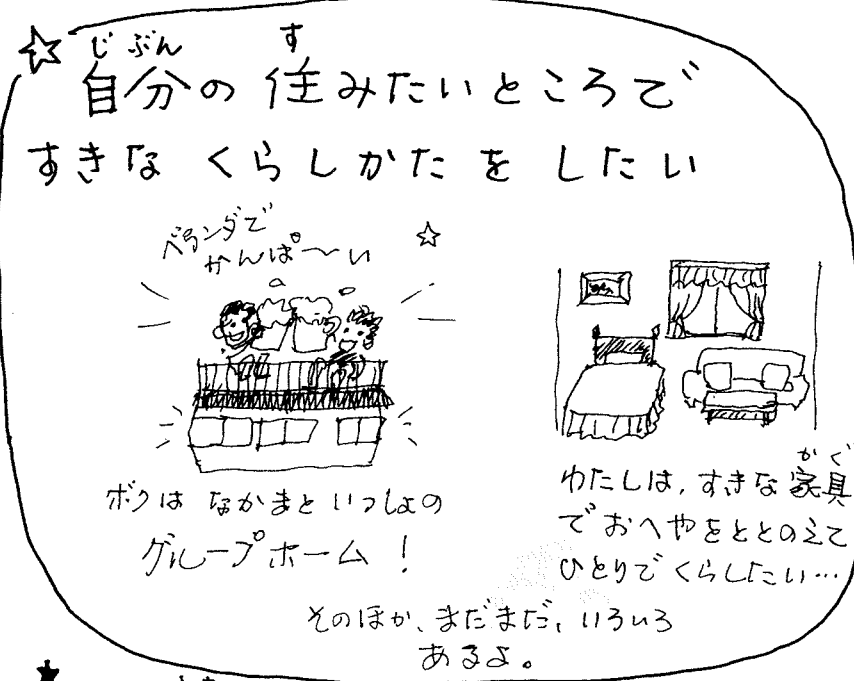 ☆ 自分の 住みたいところで
じぶん す
すきな くらしかたを したい
ベランダで
かんぱ〜い
☆
ボクは なかまと いっしょの
グループホーム!
わたしは、すきな家具
かぐ
でおへやをととのえて
ひとりで くらしたい…
そのほか、まだまだ、いろいろ
あるよ。
★